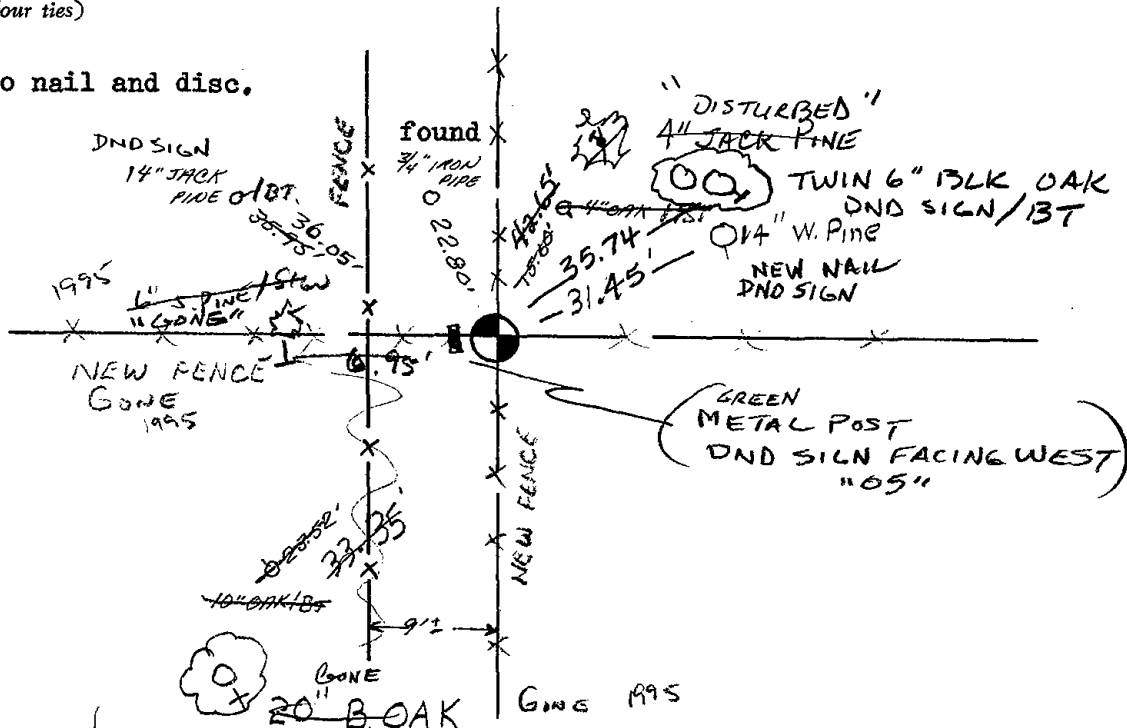 our ties)
o nail and disc.
DND SIGN
14" JACK
PINE o/BT.
36.05'
35.95'
FENCE
found
3/4" IRON
PIPE
22.80'
42.65'
"DISTURBED"
4" JACK PINE
4" OAK
TWIN 6" BLK OAK
DND SIGN/BT
35.74
31.45'
14" W. Pine
NEW NAIL
DND SIGN
1995
6" J. PINE/SIGN
"GONE"
NEW FENCE
GONE
1995
6.95'
GREEN
METAL POST
DND SIGN FACING WEST
"05"
NEW FENCE
23.52'
33.35'
10" OAK/BT
9'±
GONE
20" B. OAK
GONE 1995